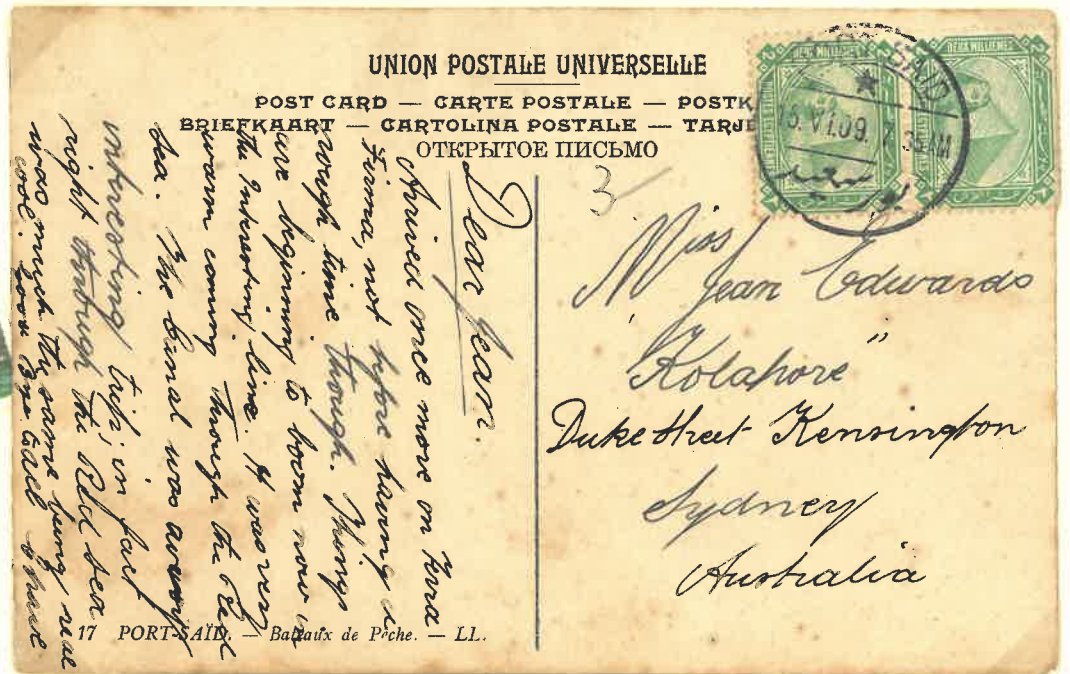 UNION POSTALE UNIVERSELLE
POST CARD — CARTE POSTALE — POSTK
BRIEFKAART — CARTOLINA POSTALE — TARJE
ОТКРЫТОЕ ПИСЬМО
DEUX MILLIEMES
DEUX MILLIEMES
SAID
15.VI.09. 7 35 AM
بور سعيد
3
Miss
Jean Edwards
"Kolapore"
Duke Street Kensington
Sydney
Australia
Dear Jean.
Arrived once more on Terra
Firma, not before having a
rough time though. Things
are beginning to boom now in
the interesting line. It was very
warm coming through the Red
Sea. The Canal was
interesting trip, in fact
right through the Red Sea
was much the same being
cool.
17 PORT-SAÏD. — Bateaux de Pêche. — LL.